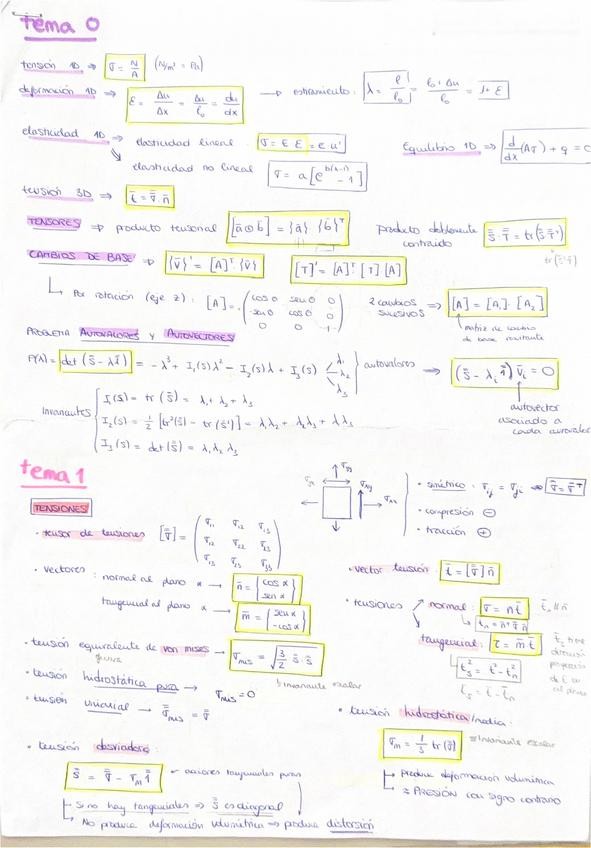 tema 0
tensión 1D ⇒ σ = N/A (N/m² = Pa)
deformación 1D ⇒ ε = Δu/Δx = Δu/l₀ = du/dx → estiramiento: λ = l/l₀ = (l₀ + Δu)/l₀ = 1 + ε
elasticidad 1D ⇒ elasticidad lineal σ = E ε = E u' Equilibrio 1D ⇒ d/dx (Aσ) + q = 0
elasticidad no lineal σ = a[e^(b(λ-1)) - 1]
tensión 3D ⇒ t̄ = σ̿ · n̄
TENSORES ⇒ producto tensorial [ā ⊗ b̄] = {ā} {b̄}ᵀ producto doblemente contraido S̿ : T̿ = tr(S̿ T̿ᵀ)
CAMBIOS DE BASE ⇒ {v̄}' = [A]ᵀ {v̄} [T]' = [A]ᵀ [T] [A]
Por rotación (eje z): [A] = (cos θ sen θ 0
-sen θ cos θ 0
0 0 1) 2 cambios sucesivos ⇒ [A] = [A₁] · [A₂]
matriz de cambio de base resultante
PROBLEMA AUTOVALORES y AUTOVECTORES
P(λ) = det(S̿ - λ1̿) = -λ³ + I₁(S)λ² - I₂(S)λ + I₃(S) λ₁ λ₂ λ₃ autovalores ⇒ (S̿ - λᵢ 1̿) v̄ᵢ = 0
autovector asociado a cada autovalor
Invariantes I₁(S) = tr(S̿) = λ₁ + λ₂ + λ₃
I₂(S) = 1/2 [tr²(S̿) - tr(S̿²)] = λ₁λ₂ + λ₂λ₃ + λ₁λ₃
I₃(S) = det(S̿) = λ₁ λ₂ λ₃
tema 1
TENSIONES
• simétrico: σij = σji ⇒ σ̿ = σ̿ᵀ
• compresión ⊖
• tracción ⊕
• tensor de tensiones [σ̿] = (σ₁₁ σ₁₂ σ₁₃
σ₁₂ σ₂₂ σ₂₃
σ₁₃ σ₂₃ σ₃₃)
• vector tensión t̄ = [σ̿] n̄
• vectores: normal al plano α → n̄ = {cos α
sen α}
tangencial al plano α → m̄ = {sen α
-cos α}
• tensiones normal: σ = n̄ t̄ t̄n ∥ n̄
tn = n̄ᵀ σ̿ n̄
tangencial: τ = m̄ t̄
ts² = t² - tn²
t̄s = t̄ - t̄n
• tensión equivalente de von mises → σmis = √(3/2 S̿ : S̿)
Invariante escalar
• tensión hidrostática pura → σmis = 0
• tensión uniaxial → σ̿mis = σ̿
• tensión hidrostática/media:
σm = 1/3 tr(σ̿) ≡ Invariante escalar
produce deformación volumétrica
≈ PRESIÓN con signo contrario
• tensión desviadora:
S̿ = σ̿ - σm 1̿ acciones tangenciales puras
Si no hay tangenciales ⇒ S̿ es diagonal
No produce deformación volumétrica ⇒ produce distorsión